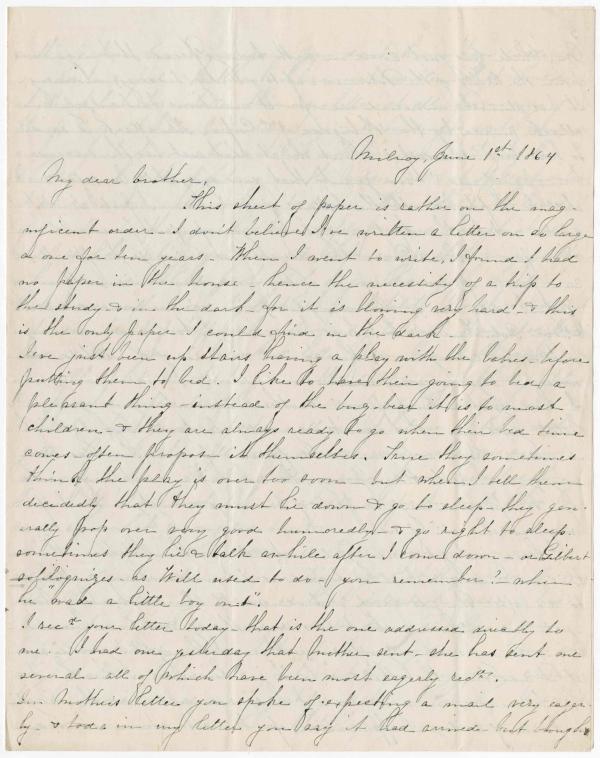 Milroy, June 1st 1864
My dear brother,
This sheet of paper is rather on the mag-
nificent order - I don't believe I've written a letter on so large
a one for ten years - When I went to write, I found I had
no paper in the house - hence the necessity of a trip to
the study - & in the dark - for it is blowing very hard - & this
is the only paper I could find in the dark -
I've just been up stairs having a play with the babies - before
putting them to bed. I like to have their going to bed a
pleasant thing - instead of the bug-bear it is to most
children - & they are always ready to go when their bed time
comes - often propose it themselves. True they sometimes
think the play is over too soon - but when I tell them
decidedly that they must lie down & go to sleep - they gen-
erally drop over very good humoredly - & go right to sleep -
sometimes they lie & talk awhile after I come down - or Gilbert
soliloquizes - as Will used to do - you remember? - when
he "was a little boy once".
I recd your letter today - that is the one addressed directly to
me. I had one yesterday that Mother sent - she has sent me
several - all of which have been most eagerly recd.
In Mother's letter you spoke of expecting a mail very eager-
ly - & today in my letter you say it had arrived - but